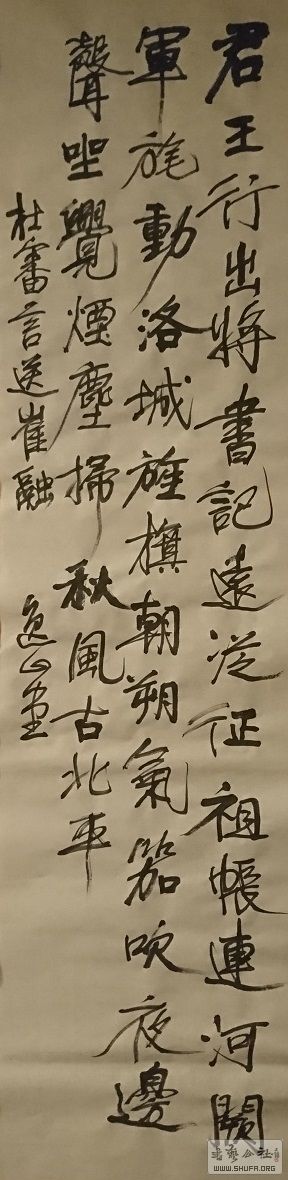 君王行出將書記遠從征祖帳連河闕
軍旄動洛城旌旗朝朔氣笳吹夜邊
聲坐覺煙塵掃秋風古北平
杜審言送崔融
書藝公社
WWW.SHUFA.ORG